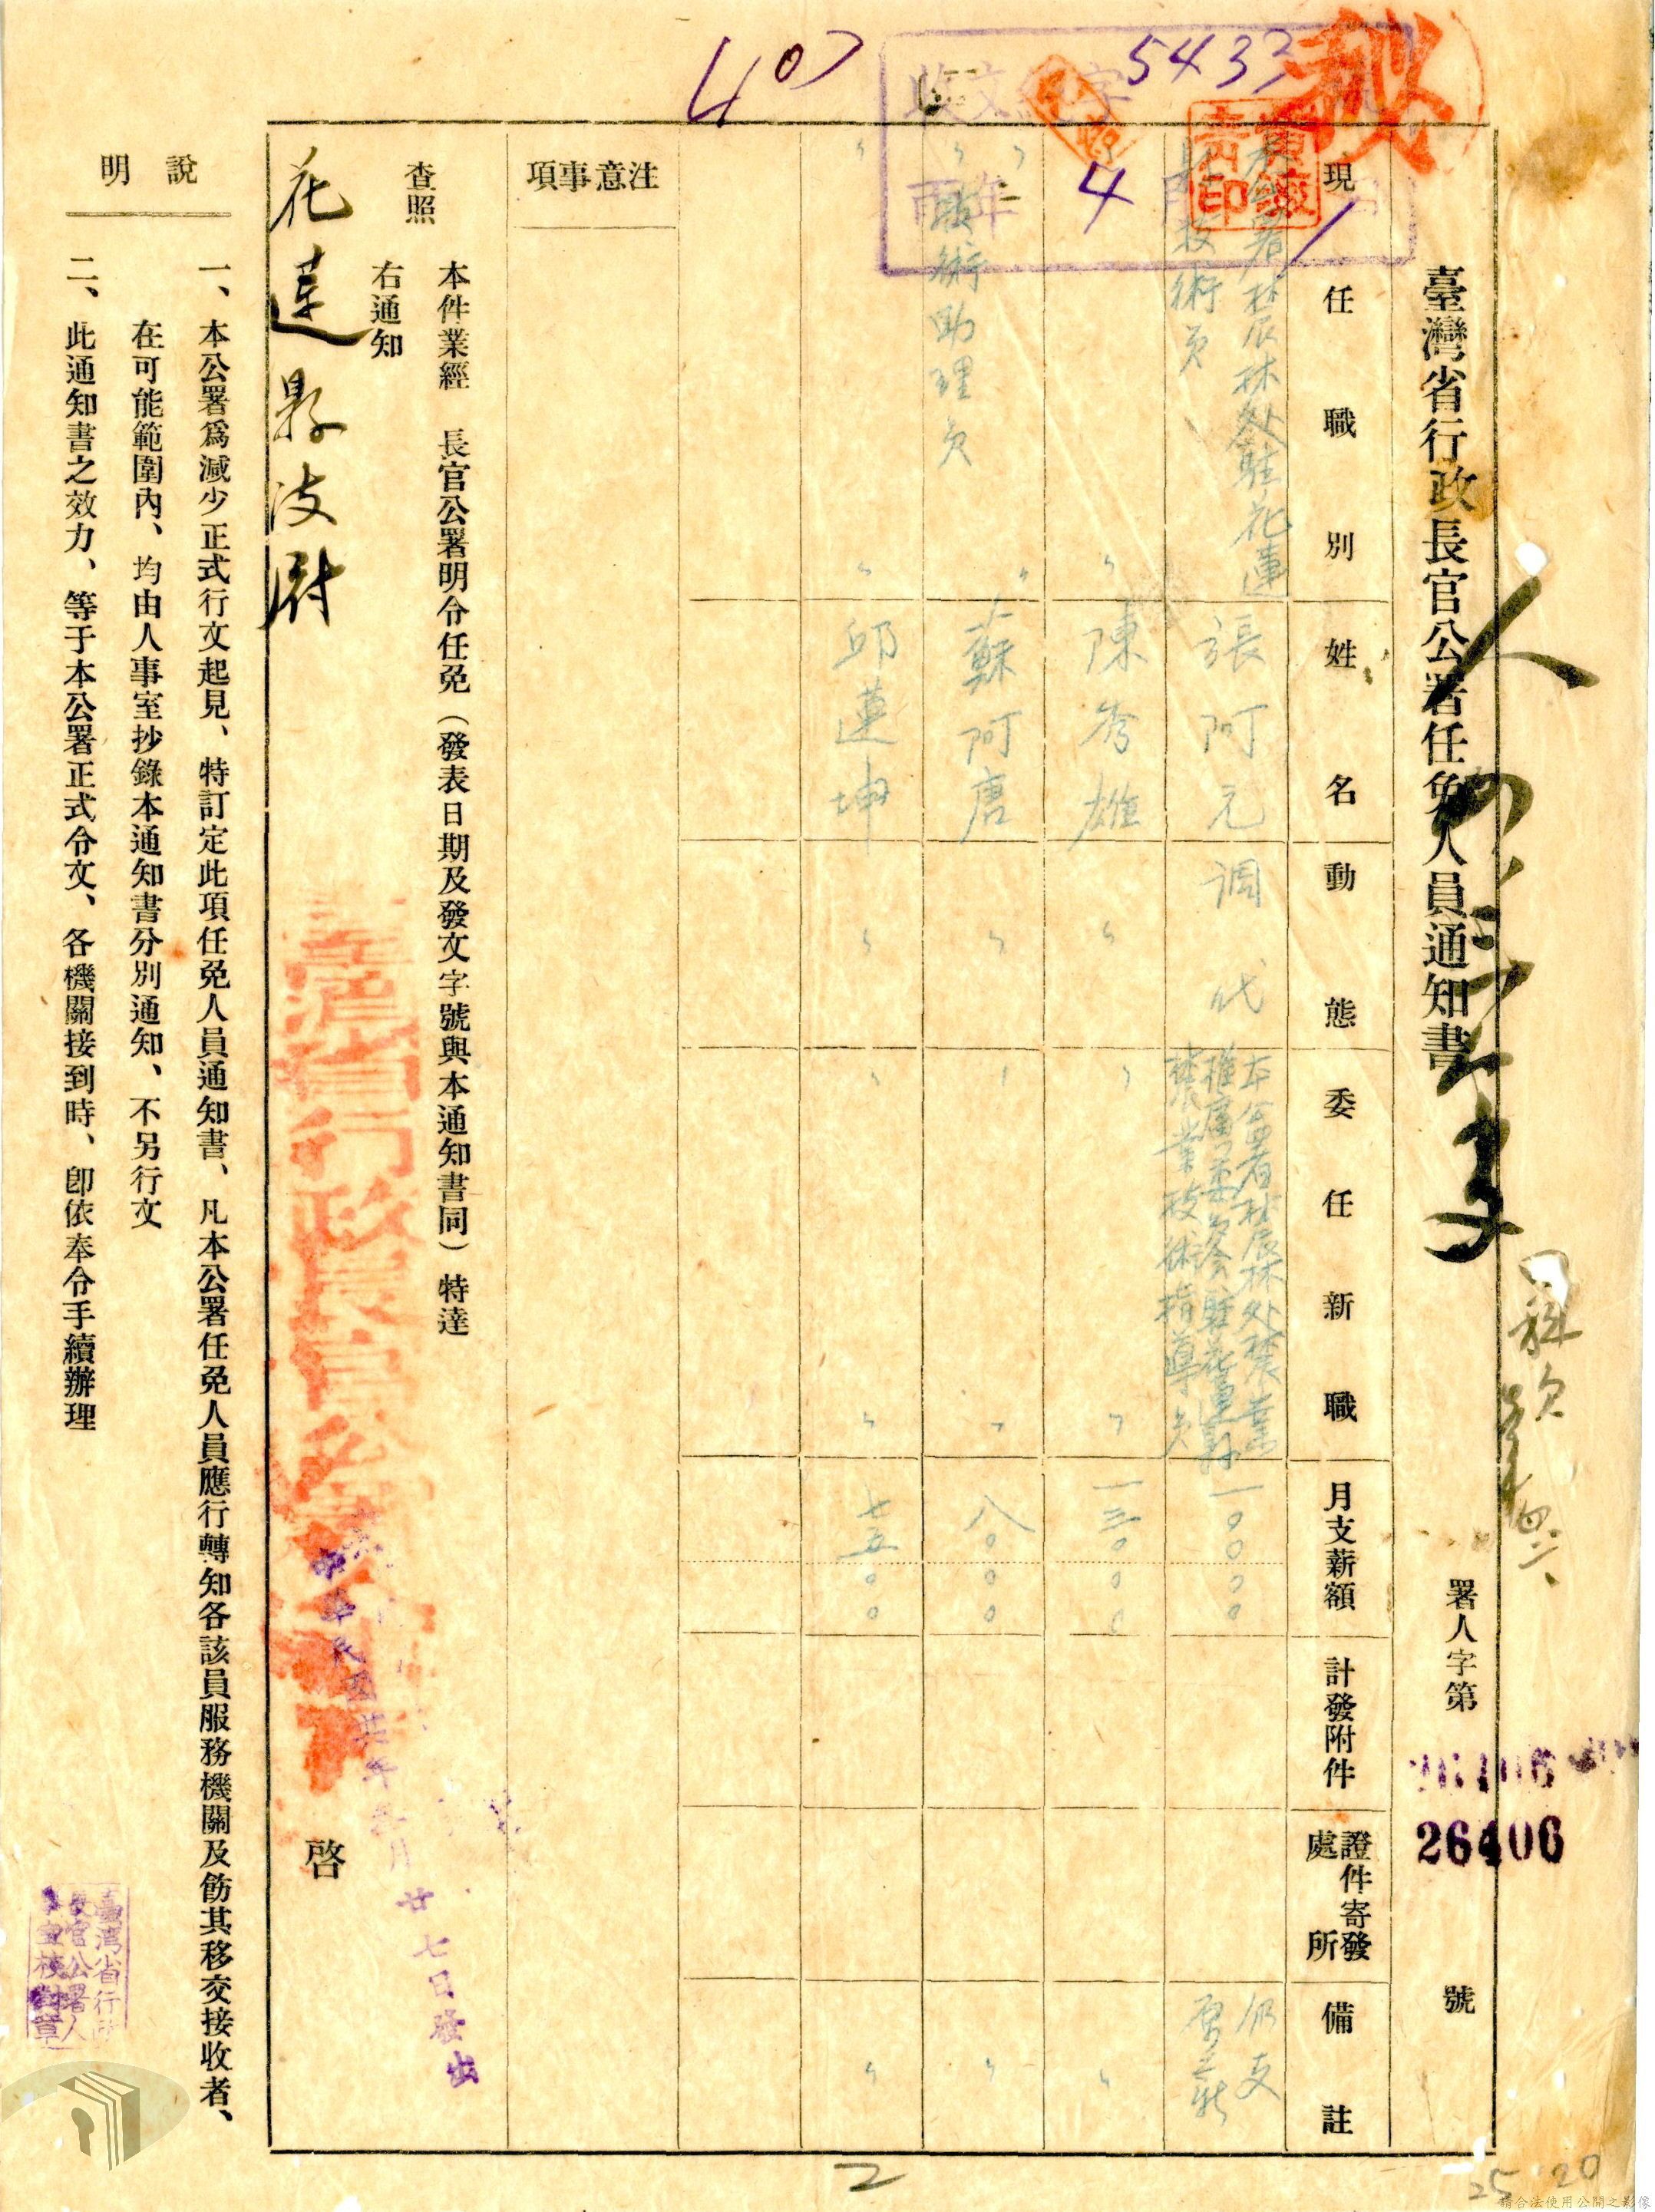 臺灣省行政長官公署任免人員通知書
署人字第
26406
號
5433
407
4
秘
現任職別
姓名
動態
委任新職
月支薪額
計發附件
證件寄發處所
備註
本公署農林处駐花蓮
技術員
張阿元
調代
本公署農林处農業
推廣委員会駐花蓮縣
農業技術指導員
一〇〇〇〇
仍支
原薪
〃
陳秀雄
〃
〃
一三〇〇〇
〃
技術助理員
蘇阿唐
〃
〃
八〇〇〇
〃
〃
邱蓮坤
〃
〃
七五〇〇
〃
注意事項
本件業經 長官公署明令任免(發表日期及發文字號與本通知書同)特達
查照
右通知
花蓮縣政府
臺灣省行政長官公署
中華民國
廿七日發出
啓
說明
一、本公署爲減少正式行文起見、特訂定此項任免人員通知書、凡本公署任免人員應行轉知各該員服務機關及飭其移交接收者、
在可能範圍內、均由人事室抄錄本通知書分別通知、不另行文
二、此通知書之效力、等于本公署正式令文、各機關接到時、卽依奉令手續辦理
臺灣省行政
長官公署人
事室校對章
2
25 20
請合法使用公開之影像